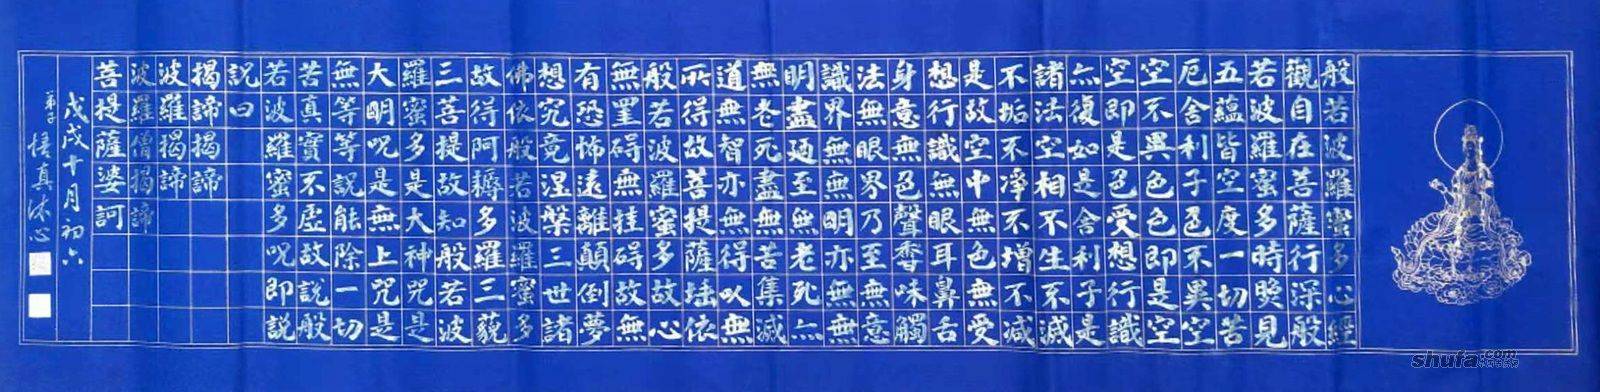 般若波羅蜜多心經
觀自在菩薩行深般
若波羅蜜多時照見
五蘊皆空度一切苦
厄舍利子色不異空
空不異色色即是空
空即是色受想行識
亦復如是舍利子是
諸法空相不生不滅
不垢不淨不增不減
是故空中無色無受
想行識無眼耳鼻舌
身意無色聲香味觸
法無眼界乃至無意
識界無無明亦無無
明盡廼至無老死亦
無老死盡無苦集滅
道無智亦無得以無
所得故菩提薩埵依
般若波羅蜜多故心
無罣碍無挂碍故無
有恐怖遠離顛倒夢
想究竟涅槃三世諸
佛依般若波羅蜜多
故得阿耨多羅三藐
三菩提故知般若波
羅蜜多是大神咒是
大明呪是無上咒是
無等等說能除一切
苦真實不虛故說般
若波羅蜜多呪即說
說曰
揭諦揭諦
波羅揭諦
波羅僧揭諦
菩提薩婆訶
戊戌十月初六
弟子悟真沐心
shufa.com